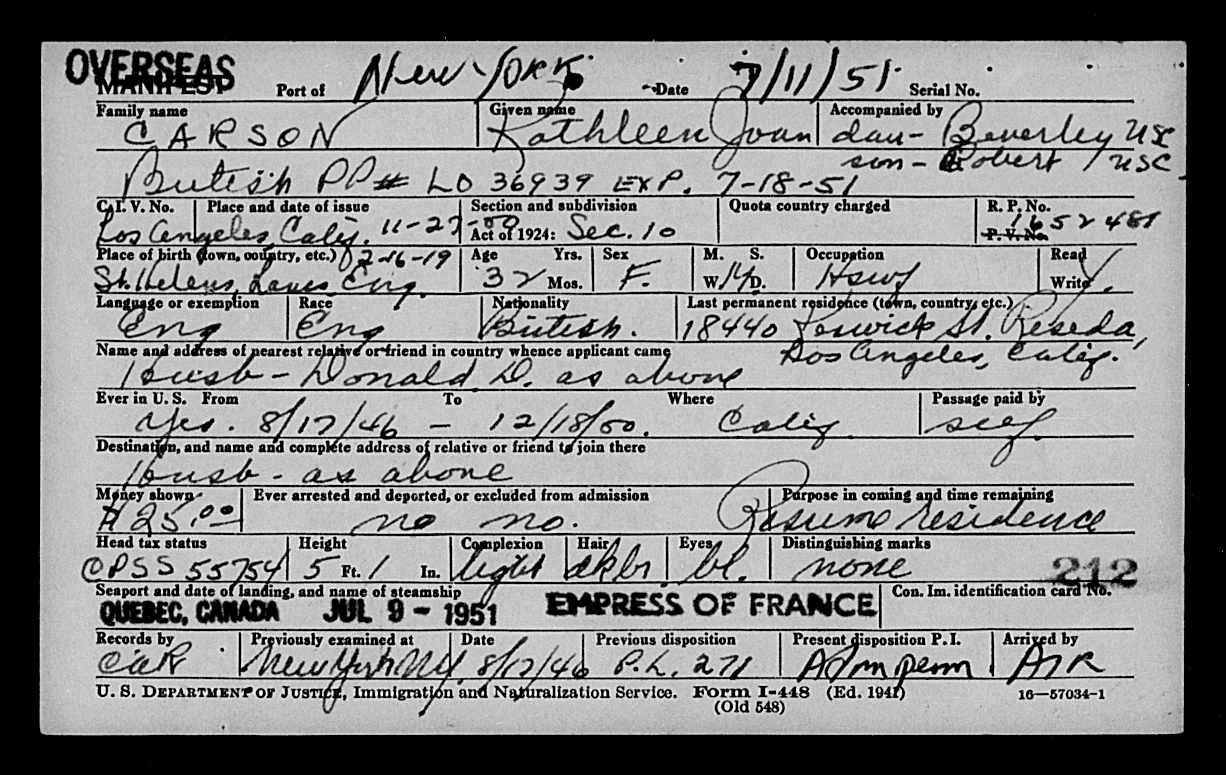 OVERSEAS
MANIFEST Port of New York Date 7/11/51 Serial No.
Family name Given name Accompanied by
CARSON Kathleen Joan dau- Beverley USC
son- Robert USC
British PP# LO 36939 EXP. 7-18-51
C. I. V. No. Place and date of issue Section and subdivision Quota country charged R. P. No.
Los Angeles, Calif. 11-27-50 Act of 1924: Sec. 10 P. V. No. 1652481
Place of birth (town, country, etc.) 2-16-19 Age Yrs. Sex M. S. Occupation Read
St. Helens, Lancs, Eng. 32 Mos. F. W. M D. Hswf Write
Language or exemption Race Nationality Last permanent residence (town, country, etc.)
Eng Eng British. 18440 Keswick St. Reseda,
Name and address of nearest relative or friend in country whence applicant came Los Angeles, Calif.
Husb- Donald D. as above
Ever in U. S. From To Where Passage paid by
Yes. 8/17/46 - 12/18/50. Calif. self
Destination, and name and complete address of relative or friend to join there
Husb- as above
Money shown Ever arrested and deported, or excluded from admission Purpose in coming and time remaining
$25.00 no no. Resume residence
Head tax status Height Complexion Hair Eyes Distinguishing marks
CPSS 55754 5 Ft. 1 In. light dkbr. bl. none 212
Seaport and date of landing, and name of steamship Con. Im. identification card No.
QUEBEC, CANADA JUL 9 - 1951 EMPRESS OF FRANCE
Records by Previously examined at Date Previous disposition Present disposition P. I. Arrived by
New York NY. 8/17/46 P.L. 271 Adm perm AIR
U. S. DEPARTMENT OF JUSTICE, Immigration and Naturalization Service. Form I-448 (Ed. 1941) 16—57034-1
(Old 548)